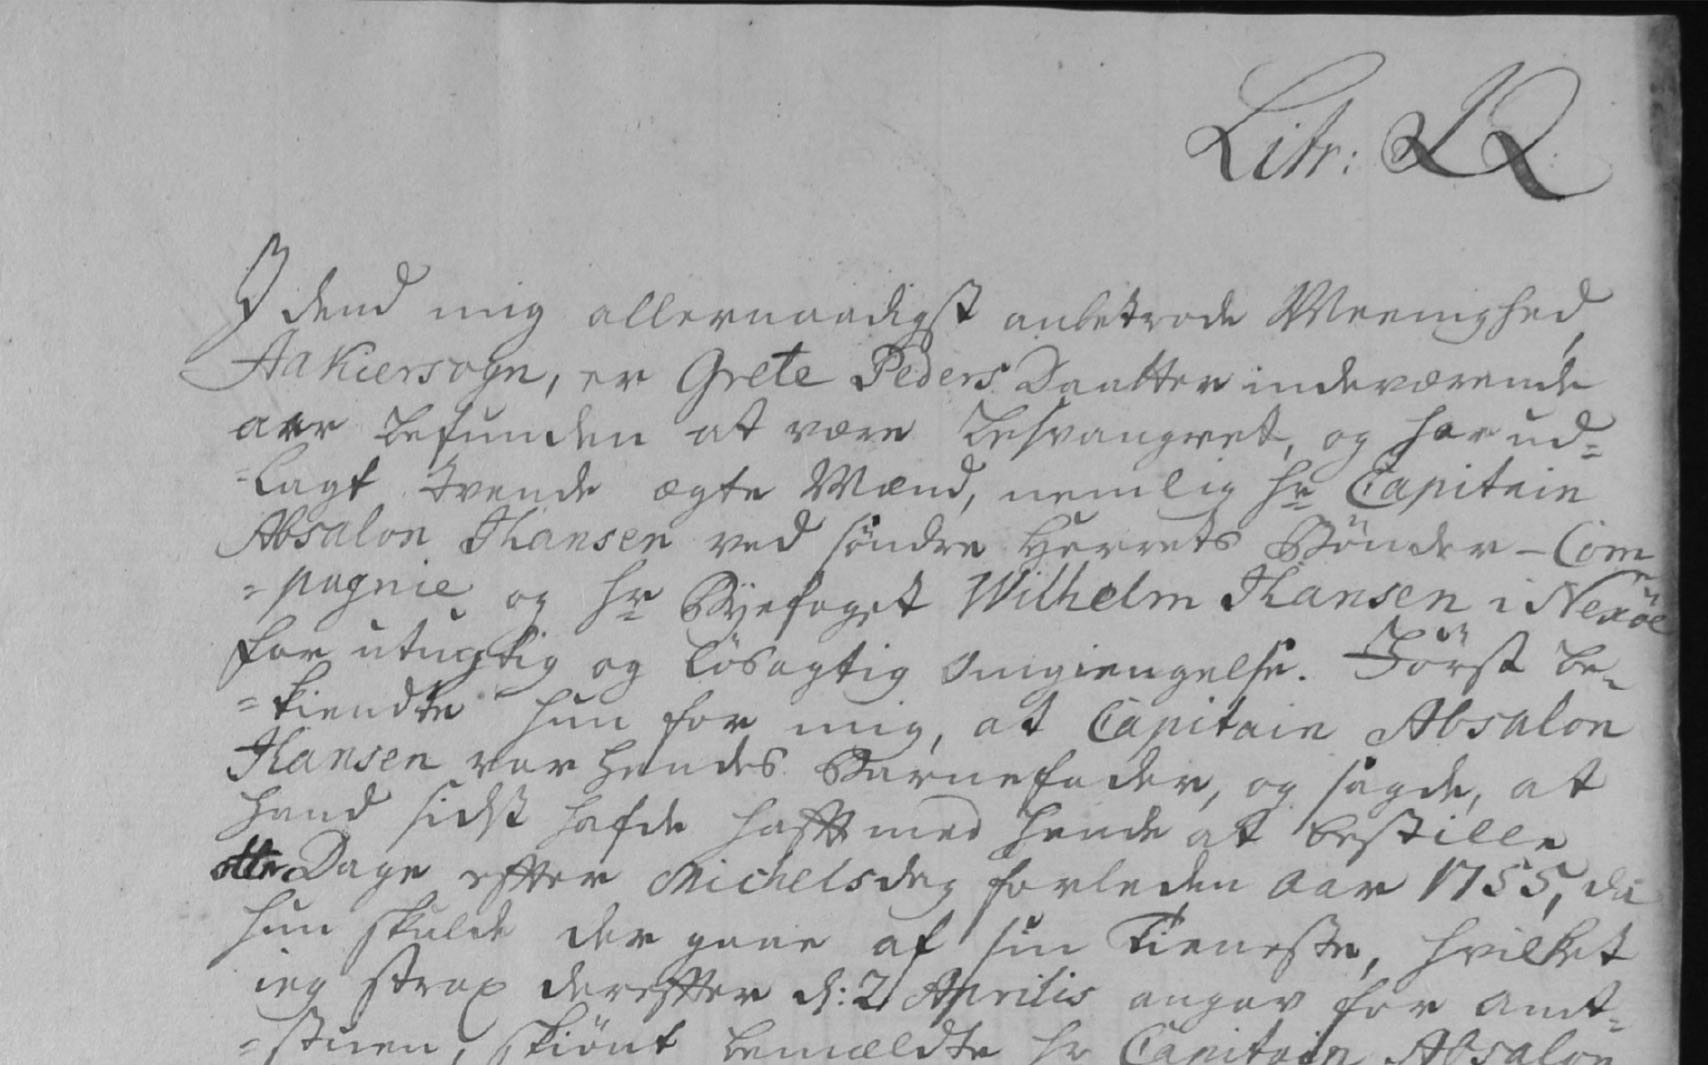 Litr: QQ
I dend mig allernaadigst anbetroede Meenighed
Aakiersogn, er Grete Peders Daatter indeværende
aar befunden at være besvangret, og har ud=
=lagt tvende ægte Mænd, nemlig hr Capitain
Absalon Hansen ved søndre Herrets Bønder-Com
=pagnie og hr Byefoget Wilhelm Hansen i Nexöe
for utugtig og løsagtig Omgiengelse. Först be=
=kiendte hun for mig, at Capitain Absalon
Hansen var hendes Barnefader, og sagde, at
hand sidst hafde hafft med hende at bestille
otte Dage effter Michelsdag forleden Aar 1755, da
hun skulde der gaae af sin Tieneste, hvilket
ieg strax dereffter d: 2 Aprilis angav for Amt=
=stuen, skiönt bemældte hr Capitain Absalon